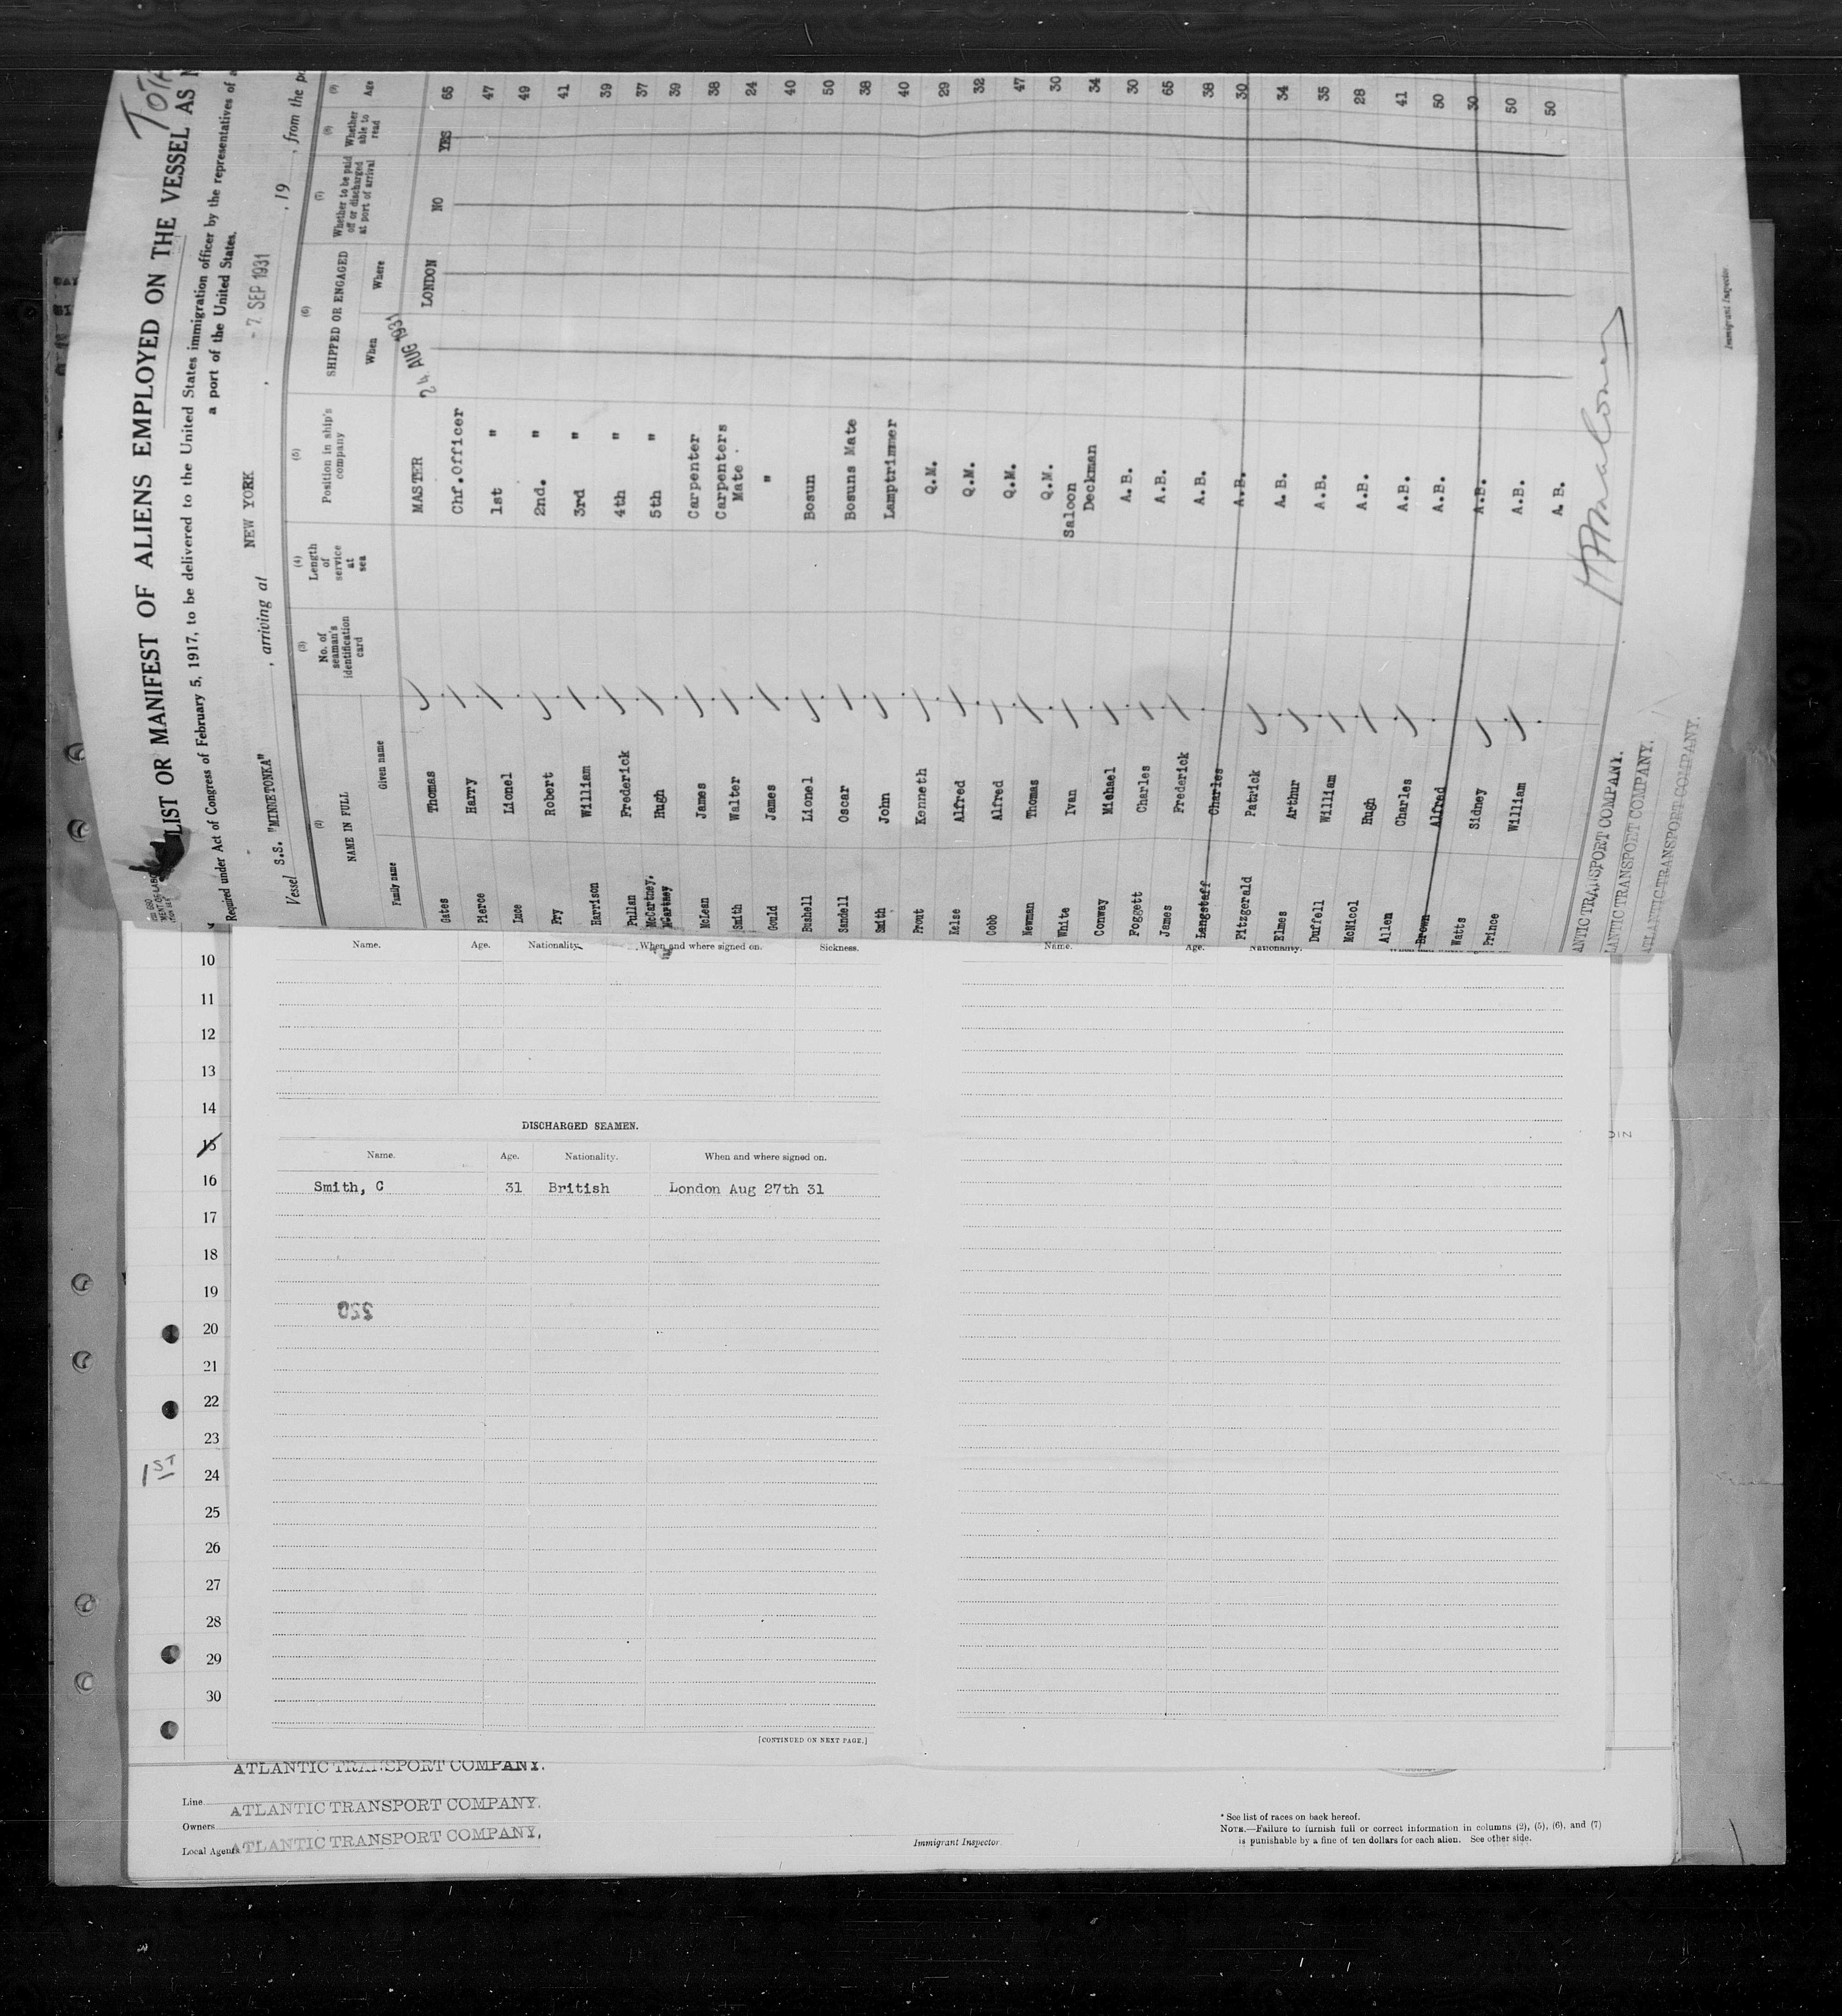 LIST OR MANIFEST OF ALIENS EMPLOYED ON THE VESSEL AS
Required under Act of Congress of February 5, 1917, to be delivered to the United States immigration officer by the representatives of a
a port of the United States.
Vessel S.S. "MINNETONKA" , arriving at NEW YORK , - 7. SEP 1931 , 19 , from the
(2) (3) (4) (5) (6) (7) (8) (9)
NAME IN FULL No. of seaman's identification card Length of service at sea Position in ship's company SHIPPED OR ENGAGED Whether to be paid off or discharged at port of arrival Whether able to read Age
Family name Given name When Where
Gates Thomas MASTER 24 AUG 1931 LONDON NO YES 65
Pierce Harry Chf.Officer 47
Luce Lionel 1st " 49
Fry Robert 2nd. " 41
Harrison William 3rd " 39
Pullan Frederick 4th " 37
McCartney. McCartney Hugh 5th " 39
McLean James Carpenter 38
Smith Walter Carpenters Mate 24
Gould James " 40
Bushell Lionel Bosun 50
Sandell Oscar Bosuns Mate 38
Smith John Lamptrimmer 40
Prout Kenneth Q.M. 29
Kelse Alfred Q.M. 32
Cobb Alfred Q.M. 47
Newman Thomas Q.M. 30
White Ivan Saloon Deckman 34
Conway Michael A.B. 30
Foggett Charles A.B. 65
James Frederick A.B. 38
Langstaff Charles A.B. 30
Fitzgerald Patrick A.B. 34
Elmes Arthur A.B. 35
Duffell William A.B. 28
McNicol Hugh A.B. 41
Allen Charles A.B. 50
Brown Alfred A.B. 30
Watts Sidney A.B. 50
Prince William A.B. 50
ANTIC TRANSPORT COMPANY.
LANTIC TRANSPORT COMPANY.
ATLANTIC TRANSPORT COMPANY.
Immigrant Inspector.
Name. Age. Nationality. When and where signed on. Sickness. Name. Age. Nationality.
10
11
12
13
14
DISCHARGED SEAMEN.
15
Name. Age. Nationality. When and where signed on.
16
Smith, C 31 British London Aug 27th 31
17
18
19
550
20
21
22
23
1ST
24
25
26
27
28
29
30
[CONTINUED ON NEXT PAGE.]
ATLANTIC TRANSPORT COMPANY.
Line ATLANTIC TRANSPORT COMPANY.
Owners
Local Agents ATLANTIC TRANSPORT COMPANY.
Immigrant Inspector.
* See list of races on back hereof.
NOTE.—Failure to furnish full or correct information in columns (2), (5), (6), and (7)
is punishable by a fine of ten dollars for each alien. See other side.